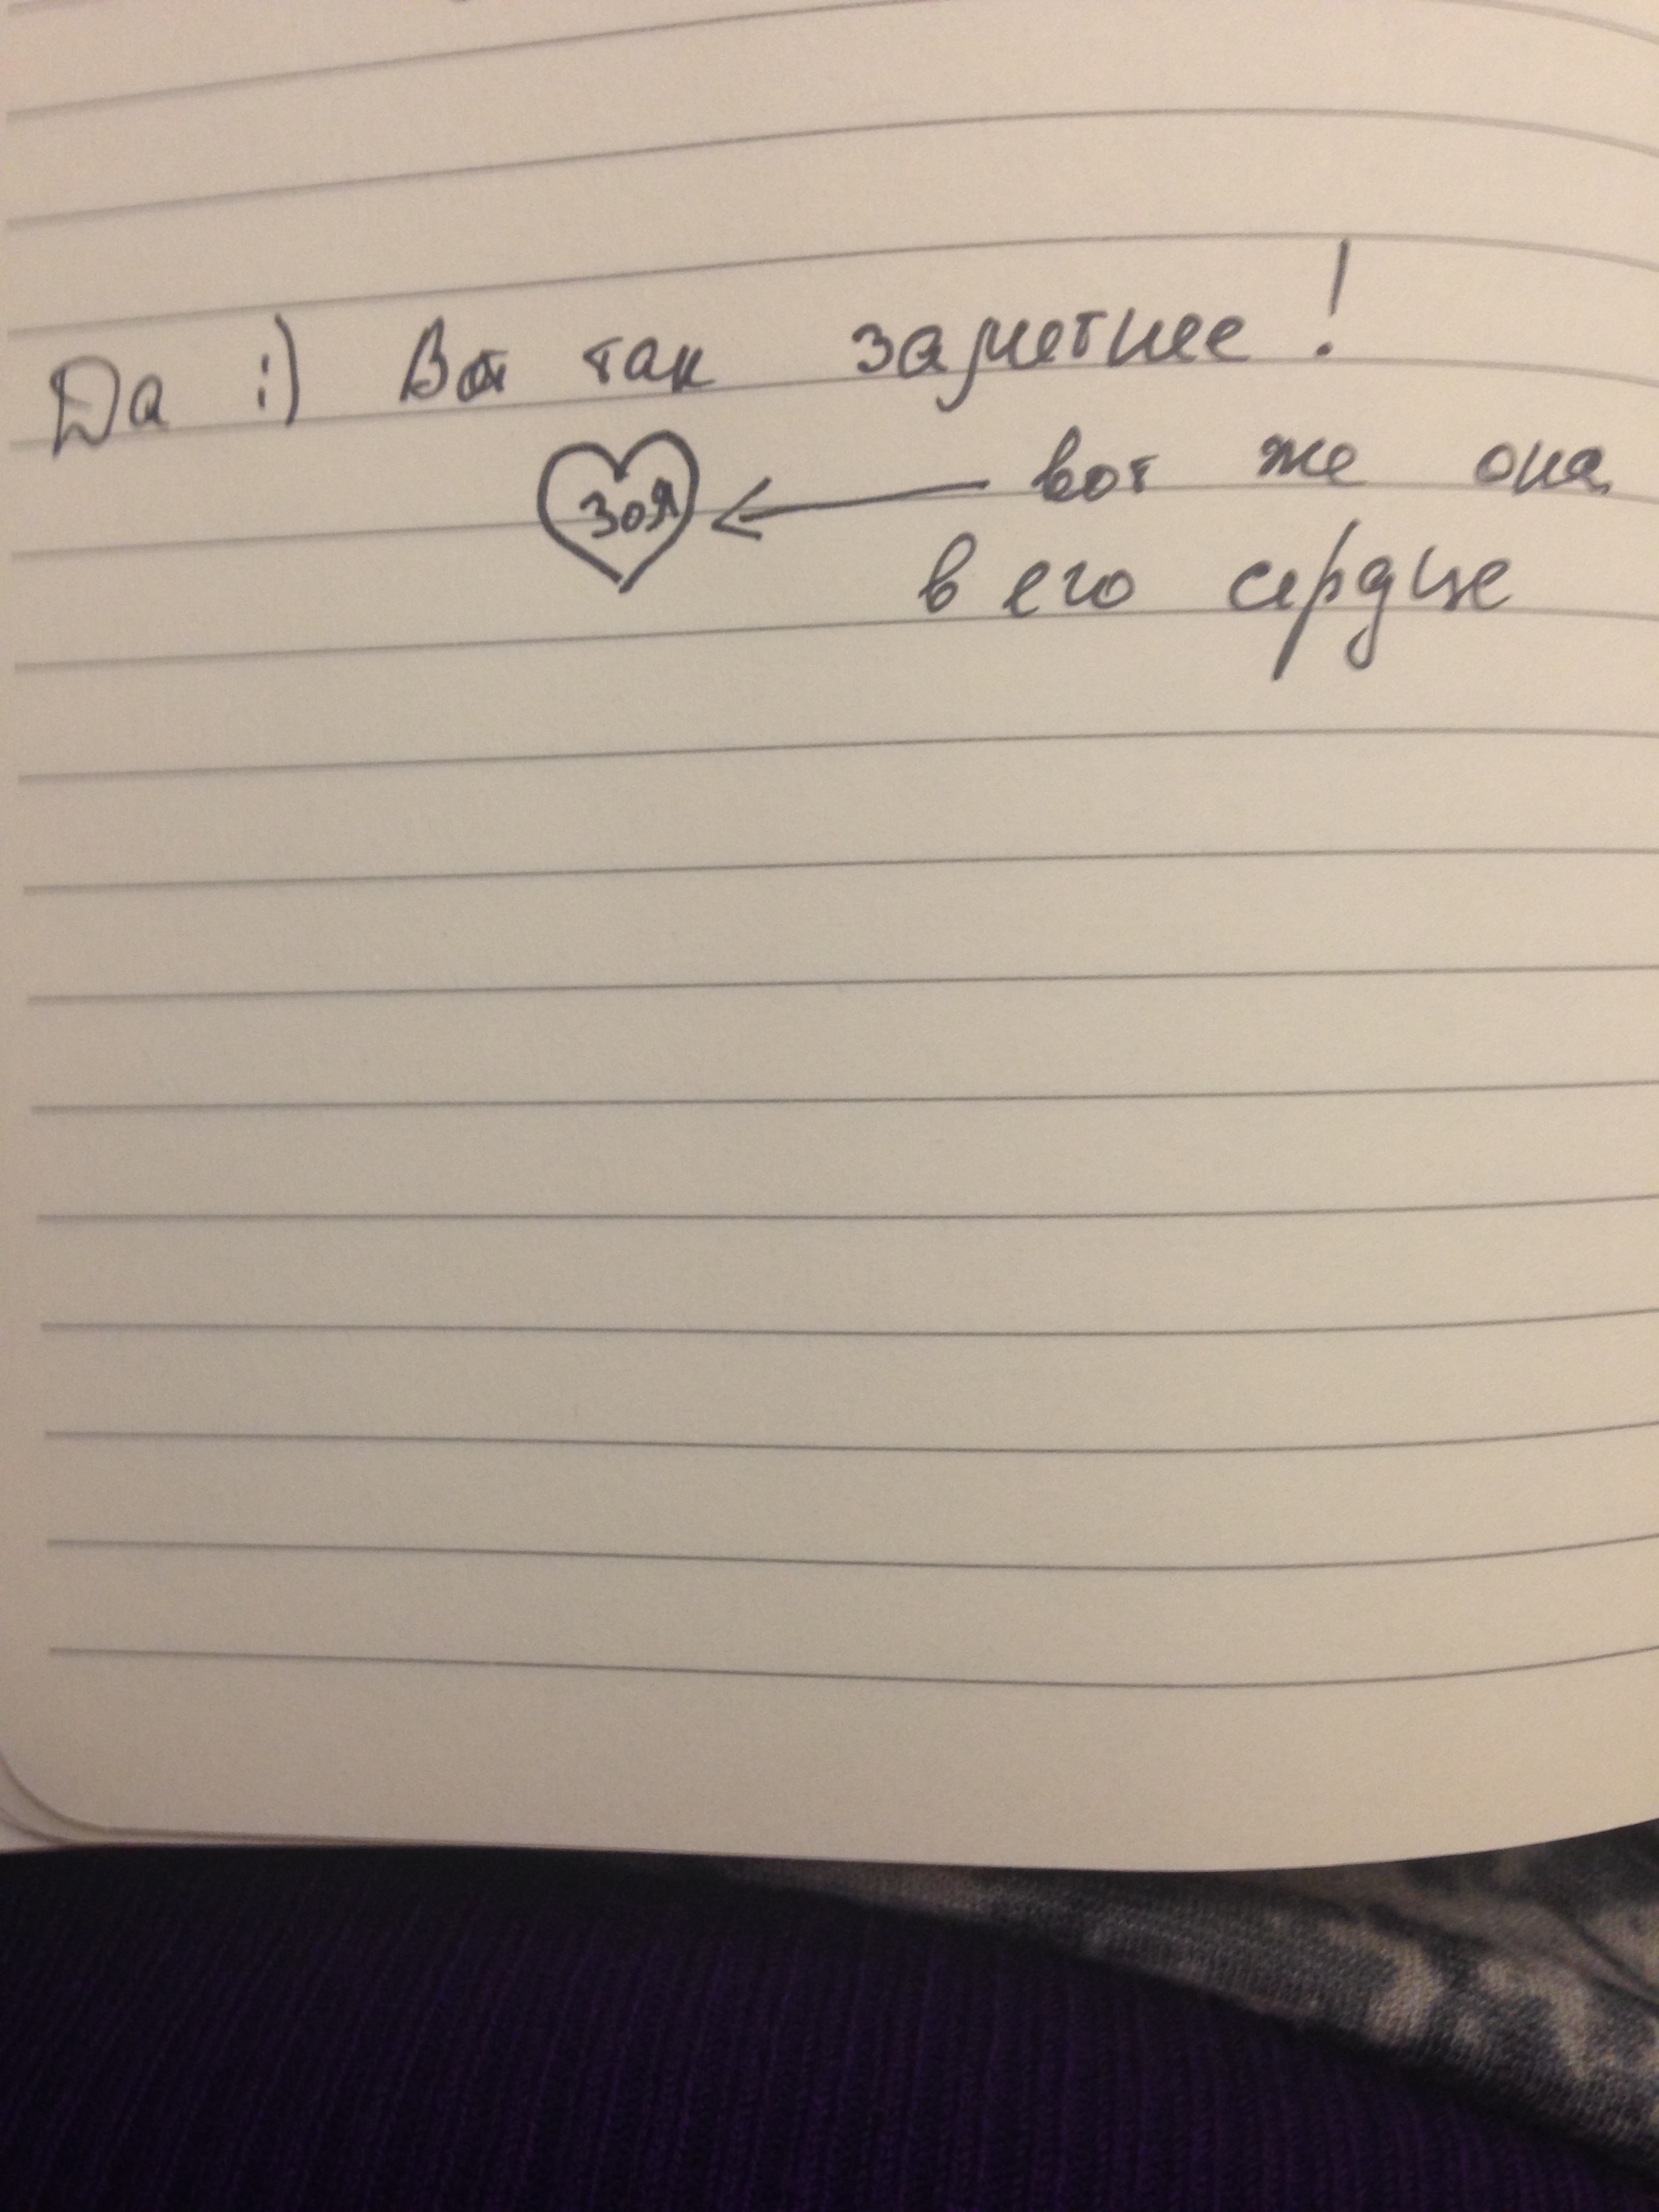 Да :) Вот так заметнее!
Зоя ← вот же она
в его сердце